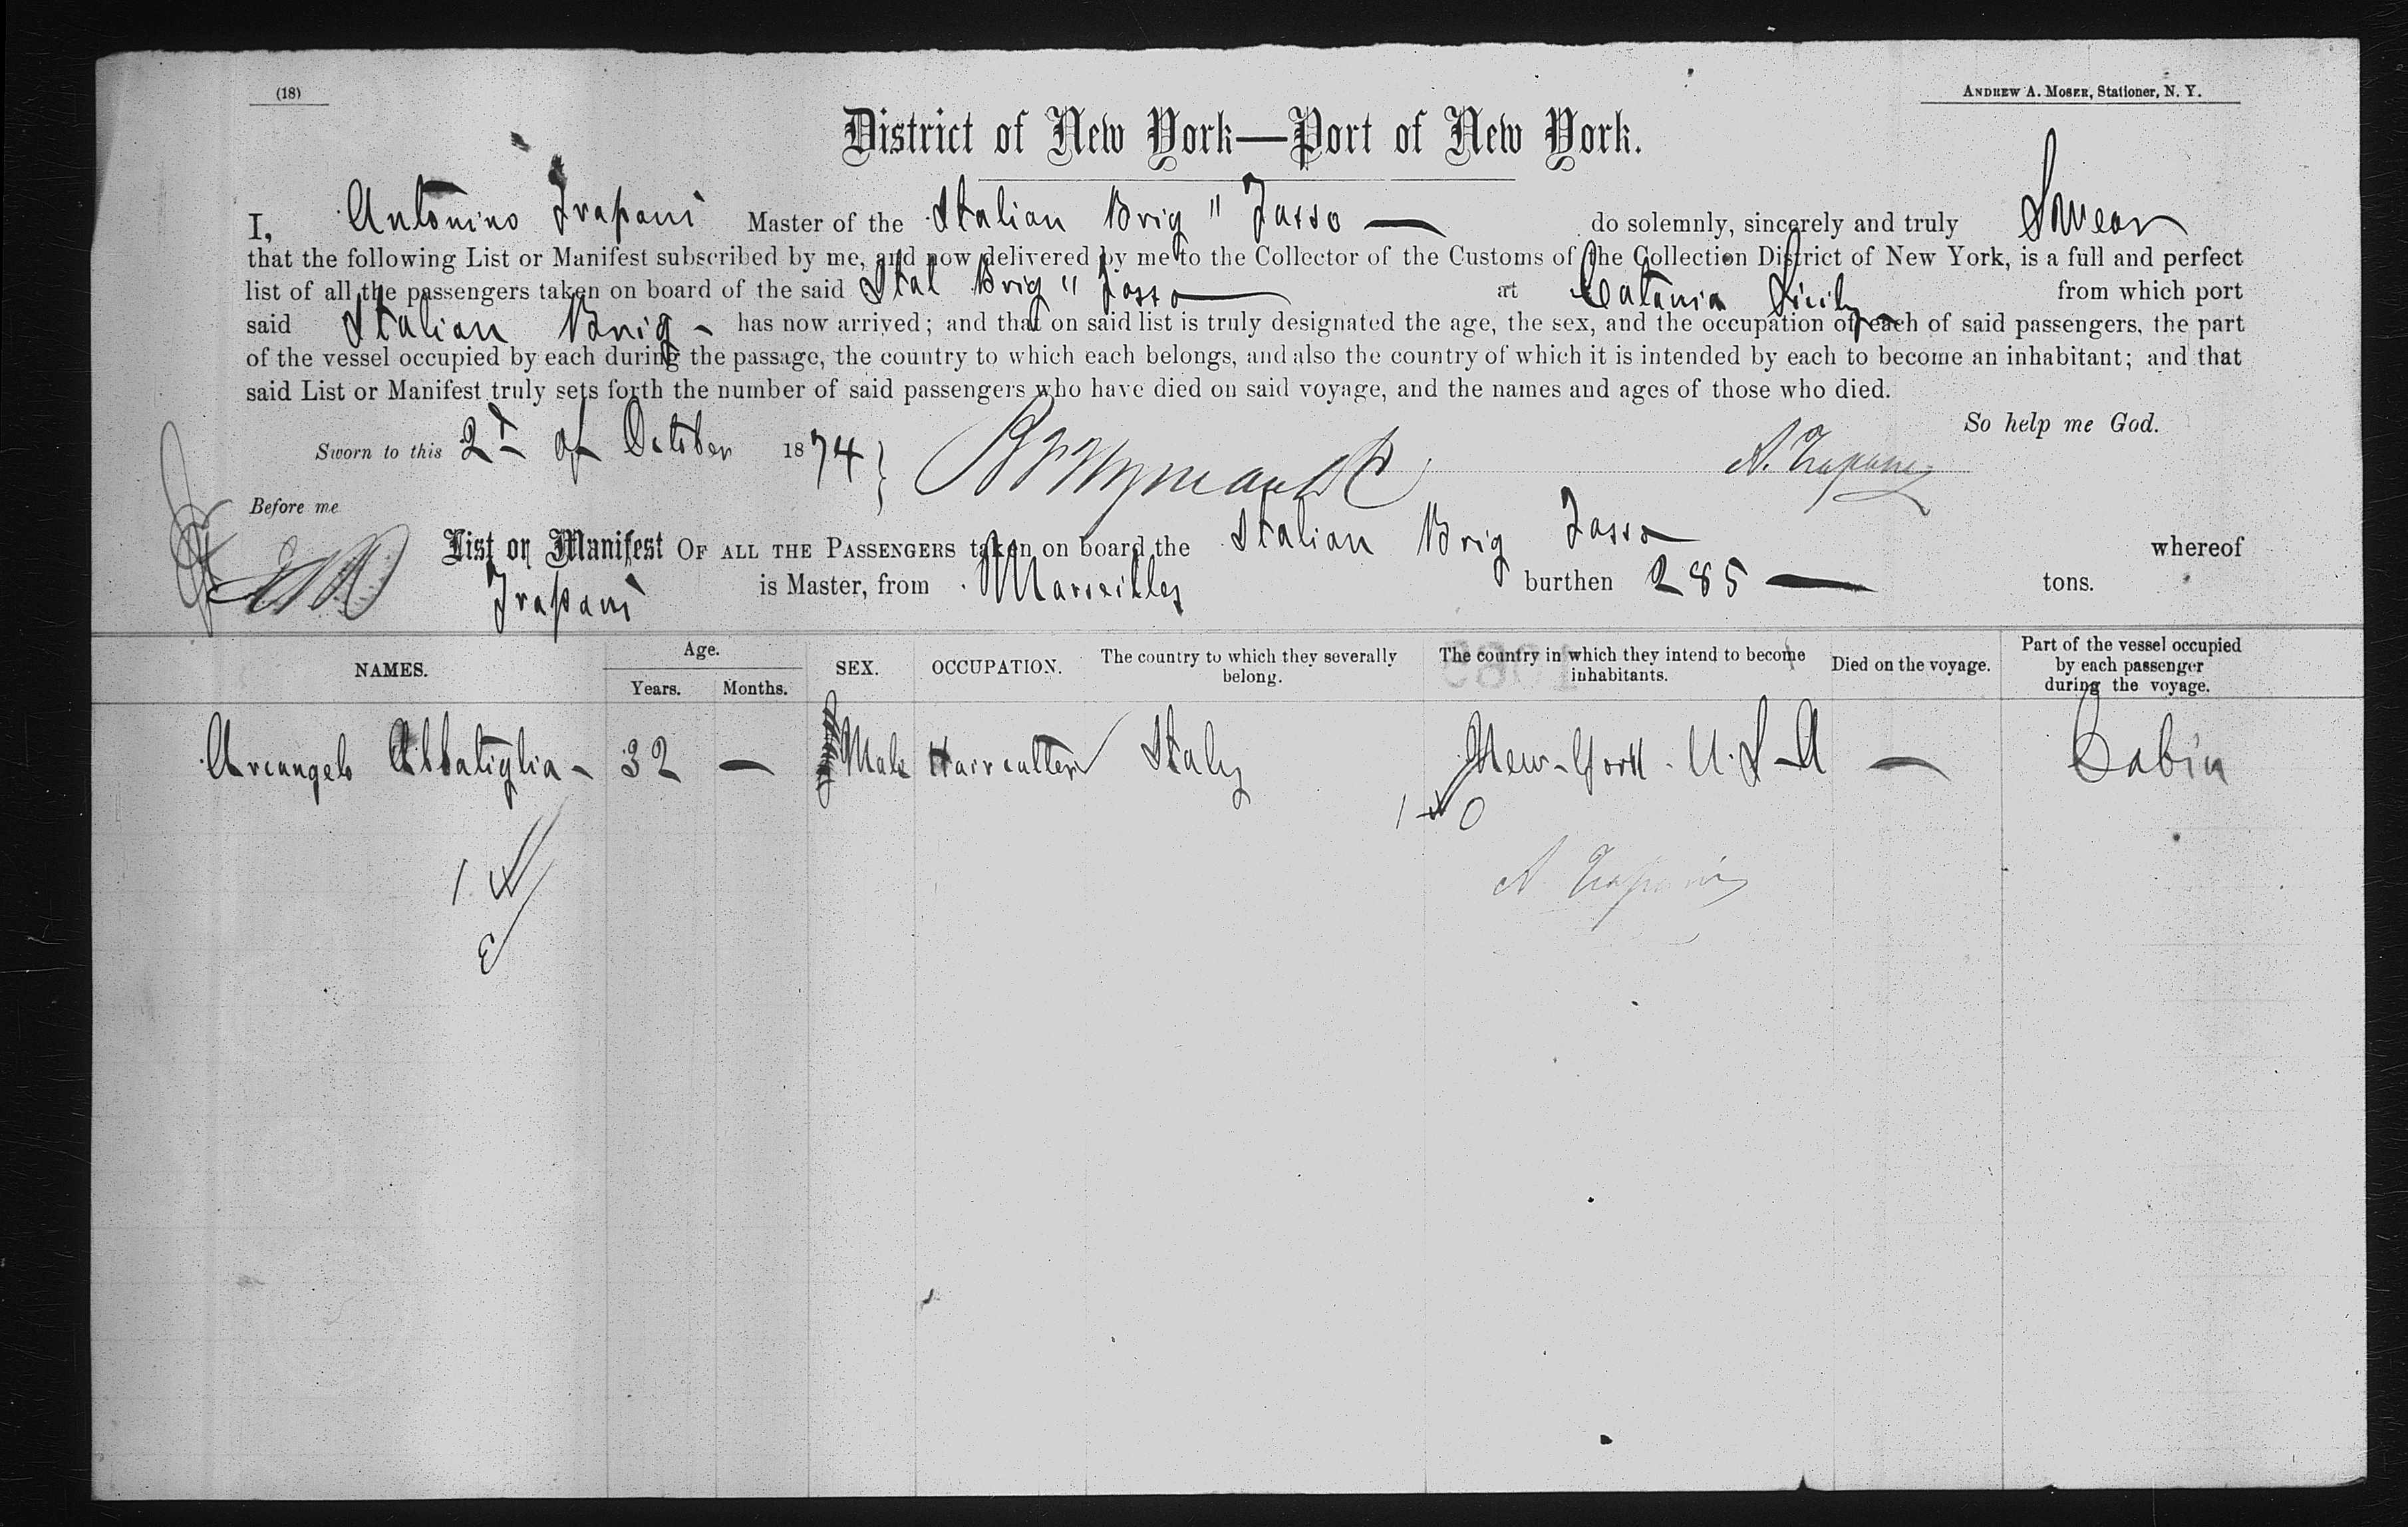 (18)
ANDREW A. MOSER, Stationer, N. Y.
District of New York—Port of New York.
I, Antonino Trapani Master of the Italian Brig " Tasso — do solemnly, sincerely and truly Swear
that the following List or Manifest subscribed by me, and now delivered by me to the Collector of the Customs of the Collection District of New York, is a full and perfect
list of all the passengers taken on board of the said Ital Brig " Tasso — at Catania Sicily from which port
said Italian Brig - has now arrived; and that on said list is truly designated the age, the sex, and the occupation of each of said passengers, the part
of the vessel occupied by each during the passage, the country to which each belongs, and also the country of which it is intended by each to become an inhabitant; and that
said List or Manifest truly sets forth the number of said passengers who have died on said voyage, and the names and ages of those who died.
So help me God.
Sworn to this 2d of October 1874 } A. Trapani
Before me
List or Manifest OF ALL THE PASSENGERS taken on board the Italian Brig Tasso whereof
Trapani is Master, from Marseilles burthen 285 — tons.
NAMES. Age. Years. Months. SEX. OCCUPATION. The country to which they severally belong. The country in which they intend to become inhabitants. Died on the voyage. Part of the vessel occupied by each passenger during the voyage.
Arcangelo Abbatiglia - 32 — Male Haircutter Italy New-York. U. S-A — Cabin
A Trapani